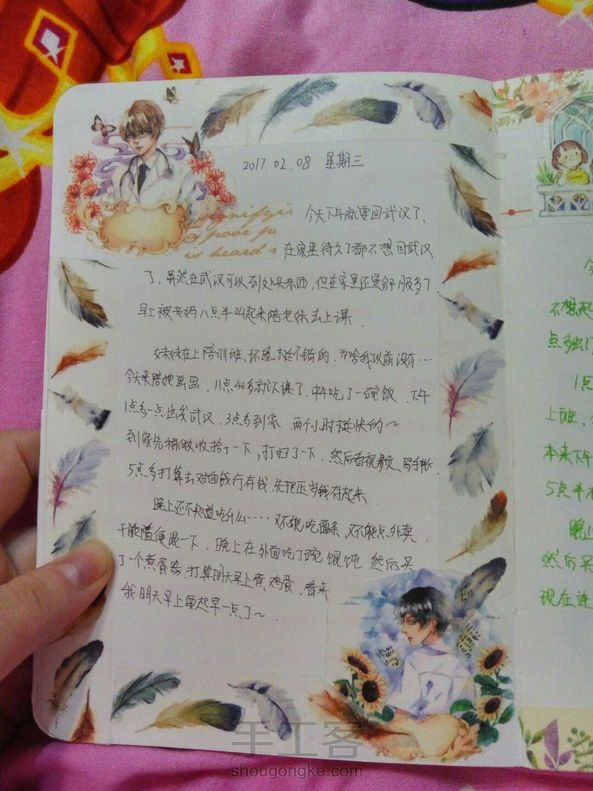 2017.02.08 星期三
今天下午就要回武汉了、
在家里待久了都不想回武汉
了，虽然在武汉可以到处买东西，但在家里还是舒服多了
早上被老妈八点半叫起来陪老妹去上课．
妹妹在上培训班，环境挺不错的．为啥我以前没有…
今天来陪她画画．11点40多就下课了、中午吃了一碗饭．下午
1点多一点出发武汉．3点多到家．两个小时挺快的～
到家先稍微收拾了一下，打扫了一下．然后看视频、写手帐．
5点多打算去对面银行存钱．先把正当钱存起来
晚上还不知道吃什么…… 又不能吃面条．又不能点外卖．
干脆随便混一下．晚上在外面吃了碗馄饨．然后买
了一个煮蛋器，打算明天早上煮鸡蛋．看来
我明天早上要起早一点了～．
nifyi
poor
is heard
不想起
点多
1点
上
本来下午
5点半
晚
然后买
现在连
手工客
shougongke.com